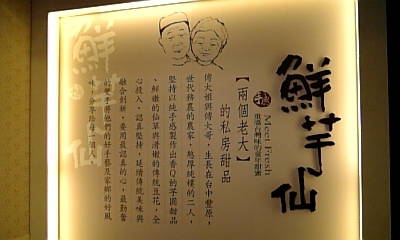 鮮芋仙
Meet Fresh
重溫台灣味的童年甜蜜
【兩個老大】
的私房甜品
傅大姐與傅大哥，生長在台中豐原，
世代務農的農家，憨厚純樸的二人，
堅持以純手感製作出香Q的芋圓甜品
、鮮嫩的仙草與滑嫩的傳統豆花，全
心投入、認真堅持，延續傳統美味與
融合創新，要用最認真的心，最勤奮
的雙手將他們的好手藝及家鄉的好風
味，分享給每一個
鮮芋仙